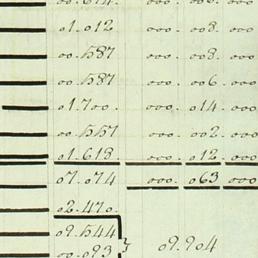 01.012 000. 008. 000
00.587 000. 008. 000.
00.587 000. 006. 000.
01.700. 000. 014. 000.
00.557 000. 002. 000
01.618 000. 012. 000.
07.074 000. 063. 000
02.470.
09.544
00.093 } 09.904